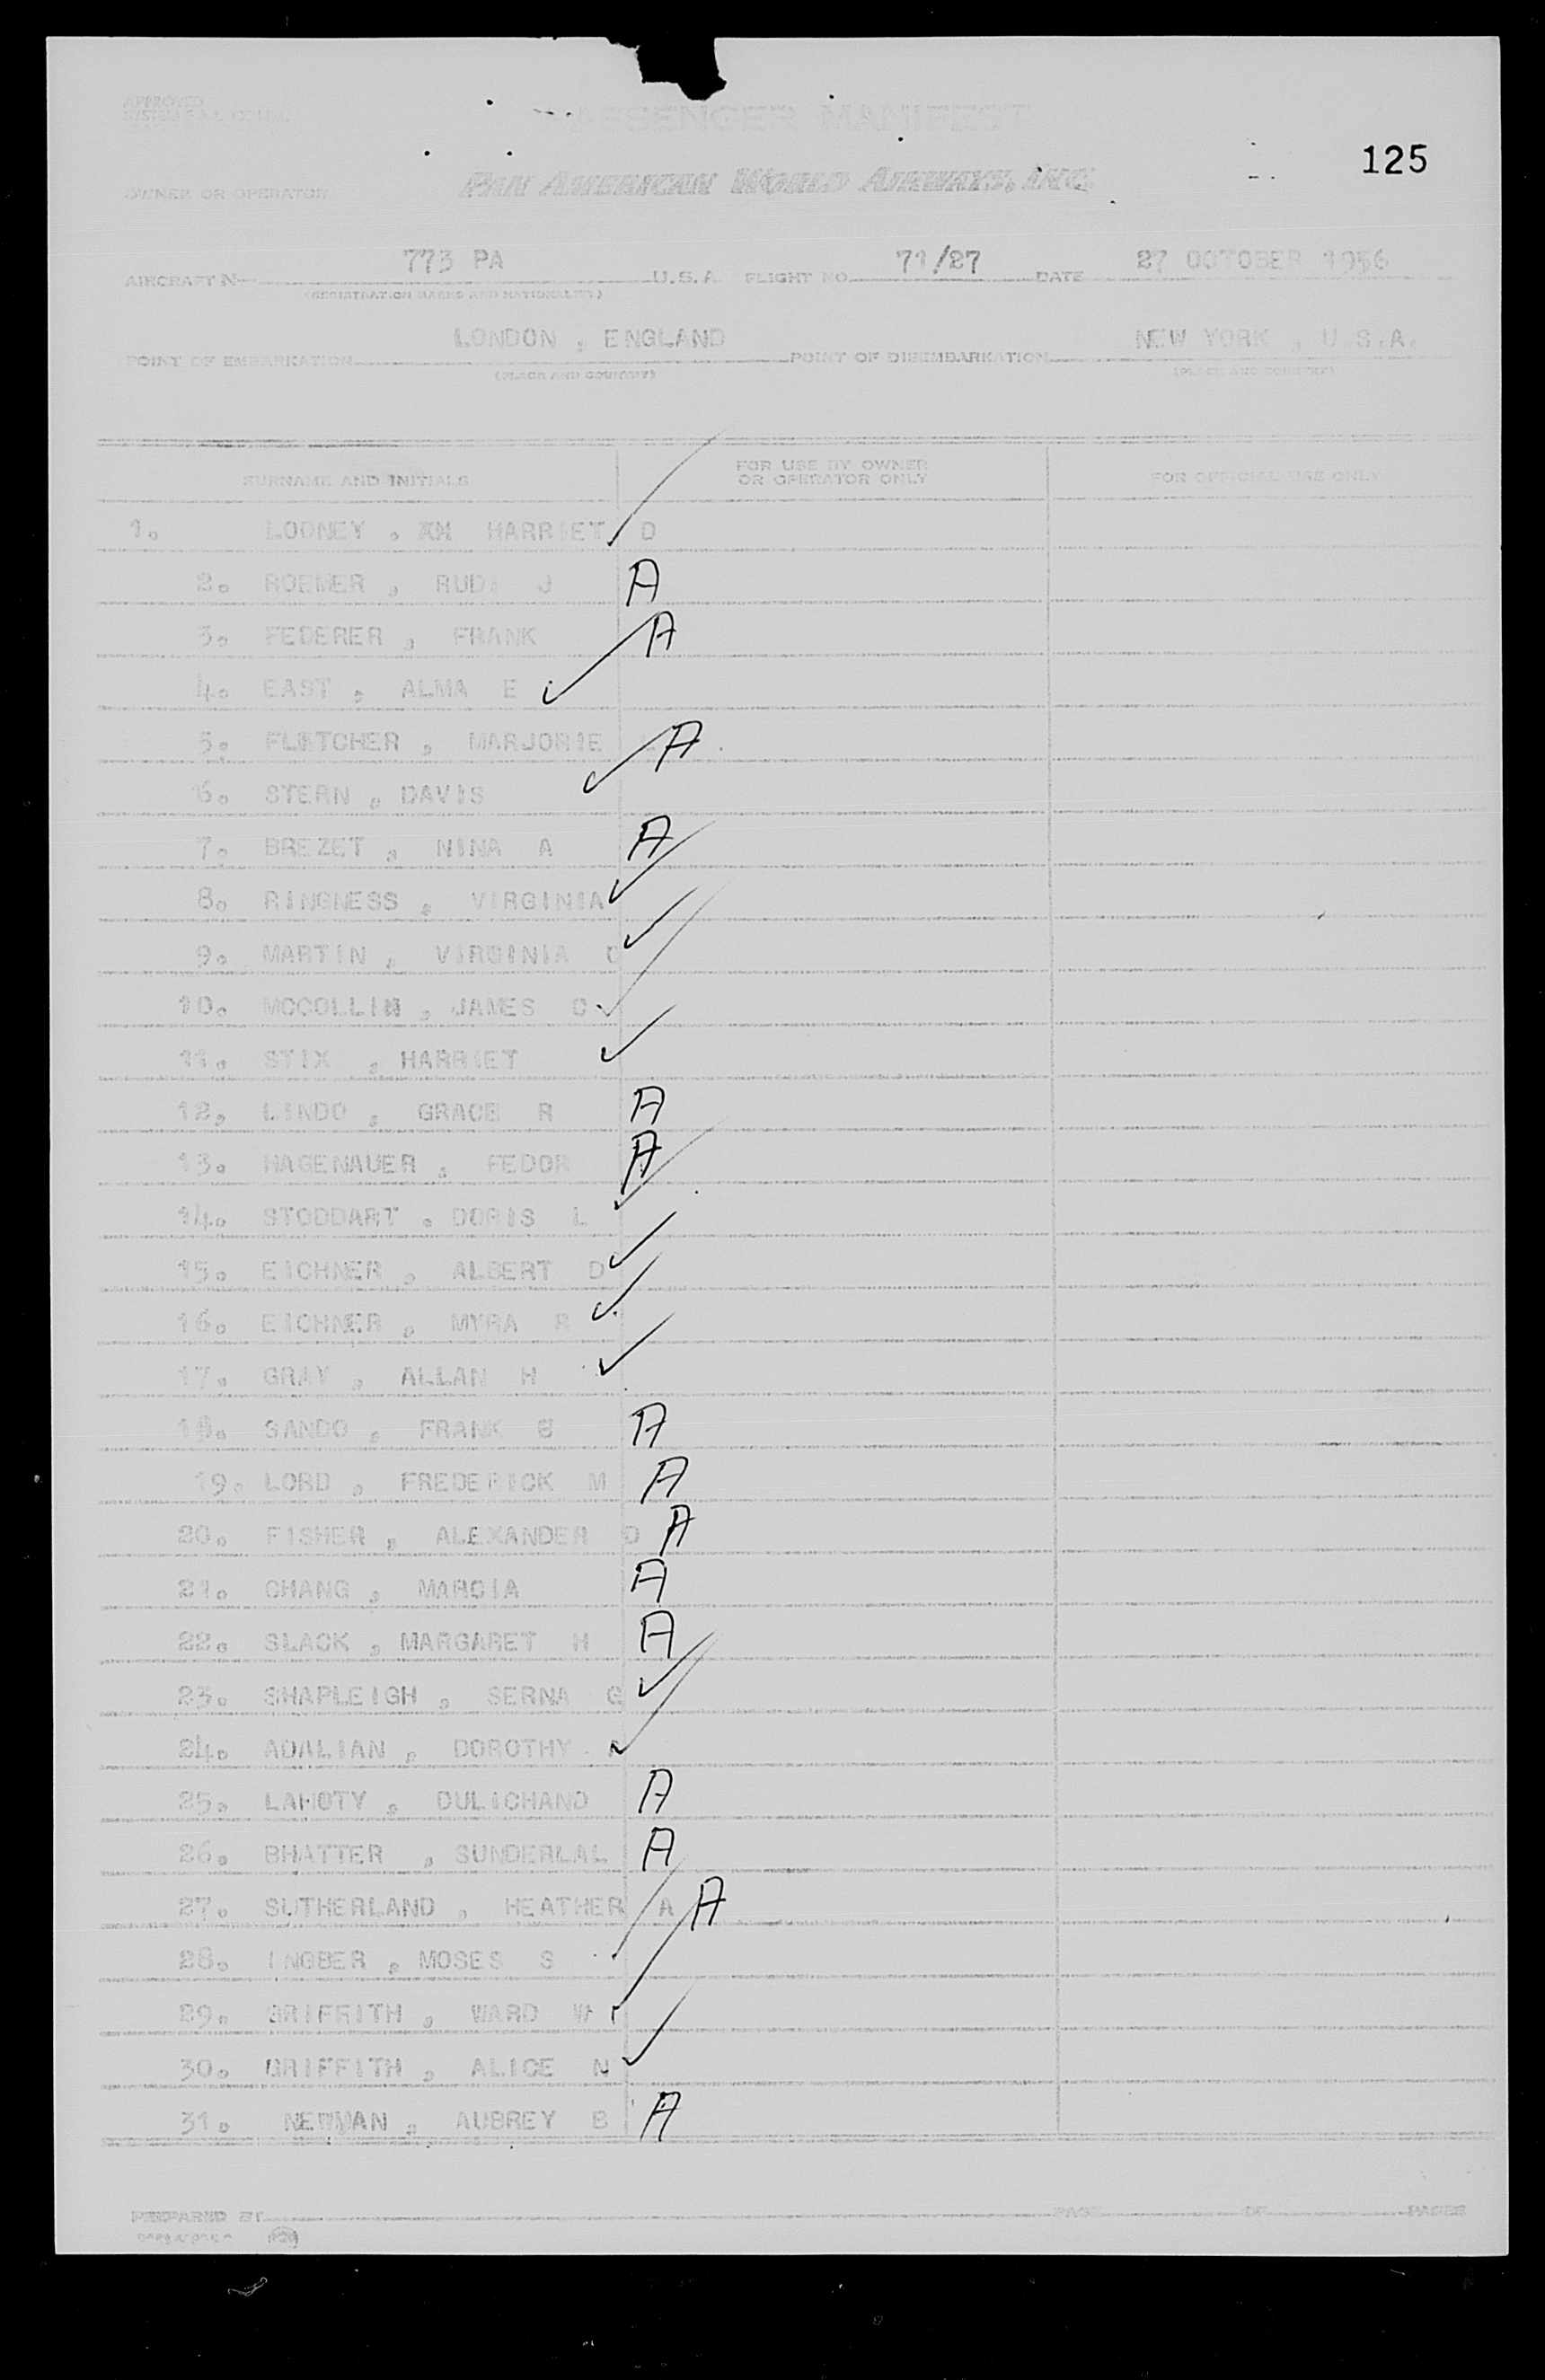 125
APPROVED
PASSENGER MANIFEST
OWNER OR OPERATOR PAN AMERICAN WORLD AIRWAYS, INC.
AIRCRAFT N 773 PA U.S.A. FLIGHT NO. 71/27 DATE 27 OCTOBER 1956
(REGISTRATION MARKS AND NATIONALITY)
POINT OF EMBARKATION LONDON , ENGLAND POINT OF DISEMBARKATION NEW YORK , U.S.A.
(PLACE AND COUNTRY) (PLACE AND COUNTRY)
SURNAME AND INITIALS FOR USE BY OWNER OR OPERATOR ONLY FOR OFFICIAL USE ONLY
1. LOONEY , HARRIET D
2. ROEMER , J A
3. FEDERER , FRANK A
4. EAST , ALMA E
5. FLETCHER , MARJORIE A
6. STERN , DAVIS
7. BREZET , NINA A A
8. RINGNESS , VIRGINIA
9. MARTIN , VIRGINIA C
10. MCCOLLIN , JAMES C
11. STIX , HARRIET
12. LINDO , GRACE R A
13. HAGENAUER , FEDOR A
14. STODDART , DORIS L
15. EICHNER , ALBERT D
16. EICHNER , MYRA R
17. GRAY , ALLAN H
18. SANDO , FRANK A
19. LORD , FREDERICK M A
20. FISHER , ALEXANDER D A
21. CHANG , MARCIA A
22. SLACK , MARGARET H A
23. SHAPLEIGH , SERNA G
24. ADALIAN , DOROTHY
25. LAHOTY , DULICHAND A
26. BHATTER , SUNDERLAL A
27. SUTHERLAND , HEATHER A A
28. INGBER , MOSES S
29. GRIFFITH , WARD W
30. GRIFFITH , ALICE N
31. NEWMAN , AUBREY B A
PREPARED BY PAGE OF PAGES